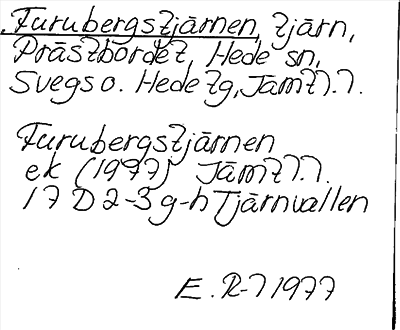 Furubergstjärnen, tjärn,
Prästbordet, Hede sn,
Svegs o. Hede tg, Jämtl.l.
Furubergstjärnen
ek (1977) Jämtl.l.
17 D 2-3 g-h Tjärnvallen
E. R-l 1977